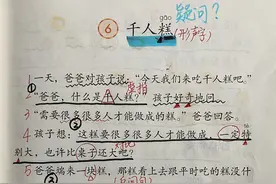 疑问？
gāo
6 千人糕
(形声字)
1 一天，爸爸对孩子说：“今天我们来吃千人糕吧。”
2 “爸爸，什么是千人糕？”孩子好奇地问。
3 “需要很多很多人才能做成的糕。”爸爸回答。
4 孩子想：这糕要很多很多人才能做成，一定特
别大，也许比桌子还大吧？
5 爸爸端来一块糕，那糕看上去跟平时吃的糕没什